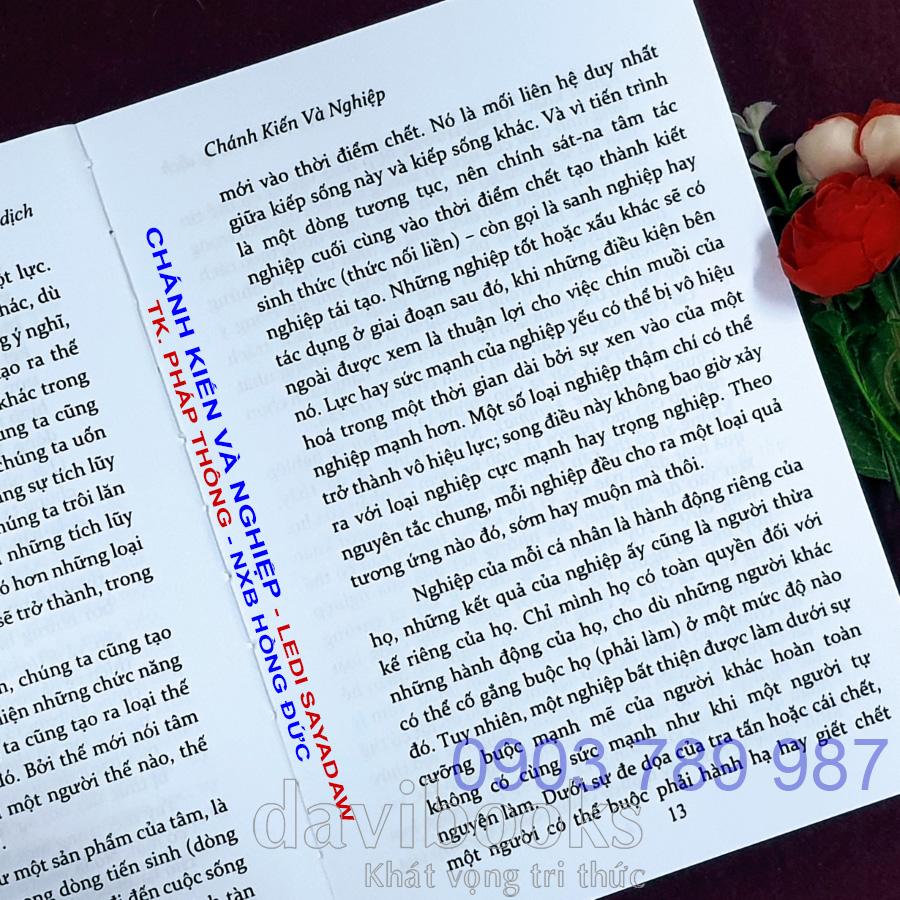 dịch
ột lực.
hác, dù
g ý nghĩ,
ạo ra thế
khác trong
úng ta cũng
chúng ta uốn
ng sự tích lũy
húng ta trôi lăn
những tích lũy
ó hơn những loại
sẽ trở thành, trong
n, chúng ta cũng tạo
iện những chức năng
ta cũng tạo ra loại thế
đó. Bởi thế mới nói tâm
một người thế nào, thế
ư một sản phẩm của tâm, là
ong dòng tiến sinh (dòng
đi đến cuộc sống
h tàn
Chánh Kiến Và Nghiệp
mới vào thời điểm chết. Nó là mối liên hệ duy nhất
giữa kiếp sống này và kiếp sống khác. Và vì tiến trình
là một dòng tương tục, nên chính sát-na tâm tác
nghiệp cuối cùng vào thời điểm chết tạo thành kiết
sinh thức (thức nối liền) – còn gọi là sanh nghiệp hay
nghiệp tái tạo. Những nghiệp tốt hoặc xấu khác sẽ có
tác dụng ở giai đoạn sau đó, khi những điều kiện bên
ngoài được xem là thuận lợi cho việc chín muồi của
nó. Lực hay sức mạnh của nghiệp yếu có thể bị vô hiệu
hoá trong một thời gian dài bởi sự xen vào của một
nghiệp mạnh hơn. Một số loại nghiệp thậm chí có thể
trở thành vô hiệu lực; song điều này không bao giờ xảy
ra với loại nghiệp cực mạnh hay trọng nghiệp. Theo
nguyên tắc chung, mỗi nghiệp đều cho ra một loại quả
tương ứng nào đó, sớm hay muộn mà thôi.
Nghiệp của mỗi cá nhân là hành động riêng của
họ, những kết quả của nghiệp ấy cũng là người thừa
kế riêng của họ. Chỉ mình họ có toàn quyền đối với
những hành động của họ, cho dù những người khác
có thể cố gắng buộc họ (phải làm) ở một mức độ nào
đó. Tuy nhiên, một nghiệp bất thiện được làm dưới sự
cưỡng buộc mạnh mẽ của người khác hoàn toàn
không có cùng sức mạnh như khi một người tự
nguyện làm. Dưới sự đe dọa của tra tấn hoặc cái chết,
một người có thể buộc phải hành hạ hay giết chết
13
CHÁNH KIẾN VÀ NGHIỆP - LEDI SAYADAW
TK. PHÁP THÔNG - NXB HỒNG ĐỨC
0903 789 987
davibooks
Khát vọng tri thức